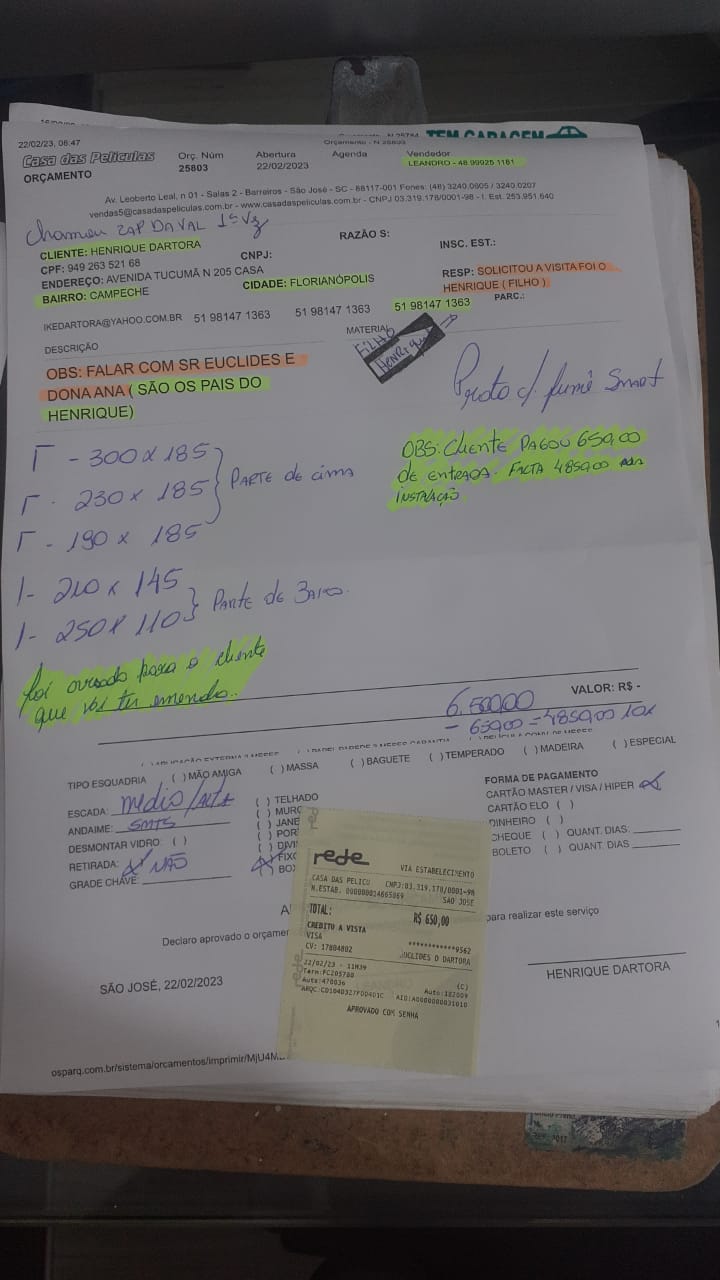 TEM GARAGEM
22/02/23, 06:47 Orçamento - N 25803
Casa das Películas Orç. Núm Abertura Agenda Vendedor
ORÇAMENTO 25803 22/02/2023 LEANDRO - 48 99925 1161
Av. Leoberto Leal, n 01 - Salas 2 - Barreiros - São José - SC - 88117-001 Fones: (48) 3240.0605 / 3240.0207
vendas5@casadaspeliculas.com.br - www.casadaspeliculas.com.br - CNPJ 03.319.178/0001-98 - I. Est. 253.951.640
Chamou ZAP DAVAL 1ª Vz
CLIENTE: HENRIQUE DARTORA RAZÃO S:
CPF: 949 263 521 68 CNPJ: INSC. EST.:
ENDEREÇO: AVENIDA TUCUMÃ N 205 CASA RESP: SOLICITOU A VISITA FOI O
BAIRRO: CAMPECHE CIDADE: FLORIANÓPOLIS HENRIQUE ( FILHO )
PARC.:
IKEDARTORA@YAHOO.COM.BR 51 98147 1363 51 98147 1363 51 98147 1363
DESCRIÇÃO MATERIAL
FILHO
Henrique
OBS: FALAR COM SR EUCLIDES E
DONA ANA ( SÃO OS PAIS DO
HENRIQUE)
Preto d/ fumê Smart
OBS: Cliente PAGOU 650,00
de entrada. FALTA 4850,00
INSTALAÇÃO
Γ - 300 x 185
Γ - 230 x 185 PARTE de cima
Γ - 190 x 185
1- 210 x 145
1- 250 x 110 Parte de Baixo.
foi avisado para o cliente
que vai ter emenda..
VALOR: R$ -
6.500,00
- 650,00 = 4850,00 10x
TIPO ESQUADRIA ( ) MÃO AMIGA ( ) MASSA ( ) BAGUETE ( ) TEMPERADO ( ) MADEIRA ( ) ESPECIAL
ESCADA: médio/Alta
ANDAIME: 5MTS
DESMONTAR VIDRO: ( )
RETIRADA: NÃO
GRADE CHAVE:
( ) TELHADO
( ) MURO
( ) JANE
( ) POR
( ) DIVI
(X) FIXO
( ) BOX
FORMA DE PAGAMENTO
CARTÃO MASTER / VISA / HIPER X
CARTÃO ELO ( )
DINHEIRO ( )
CHEQUE ( ) QUANT. DIAS:
BOLETO ( ) QUANT. DIAS
Declaro aprovado o orçame para realizar este serviço
SÃO JOSÉ, 22/02/2023
HENRIQUE DARTORA
osparq.com.br/sistema/orcamentos/imprimir/MjU4M
rede
VIA ESTABELECIMENTO
CASA DAS PELICU CNPJ:03.319.178/0001-98
N.ESTAB. 000000014665069 SAO JOSE
TOTAL: R$ 650,00
CREDITO A VISTA
VISA ************9562
CV: 17804802 UCLIDES D DARTORA
22/02/23 - 11H39 (C)
Term:FC205780 Auto:182009
Aute:470036
ARQC:CD1040327FDD401C AID:A0000000031010
APROVADO COM SENHA